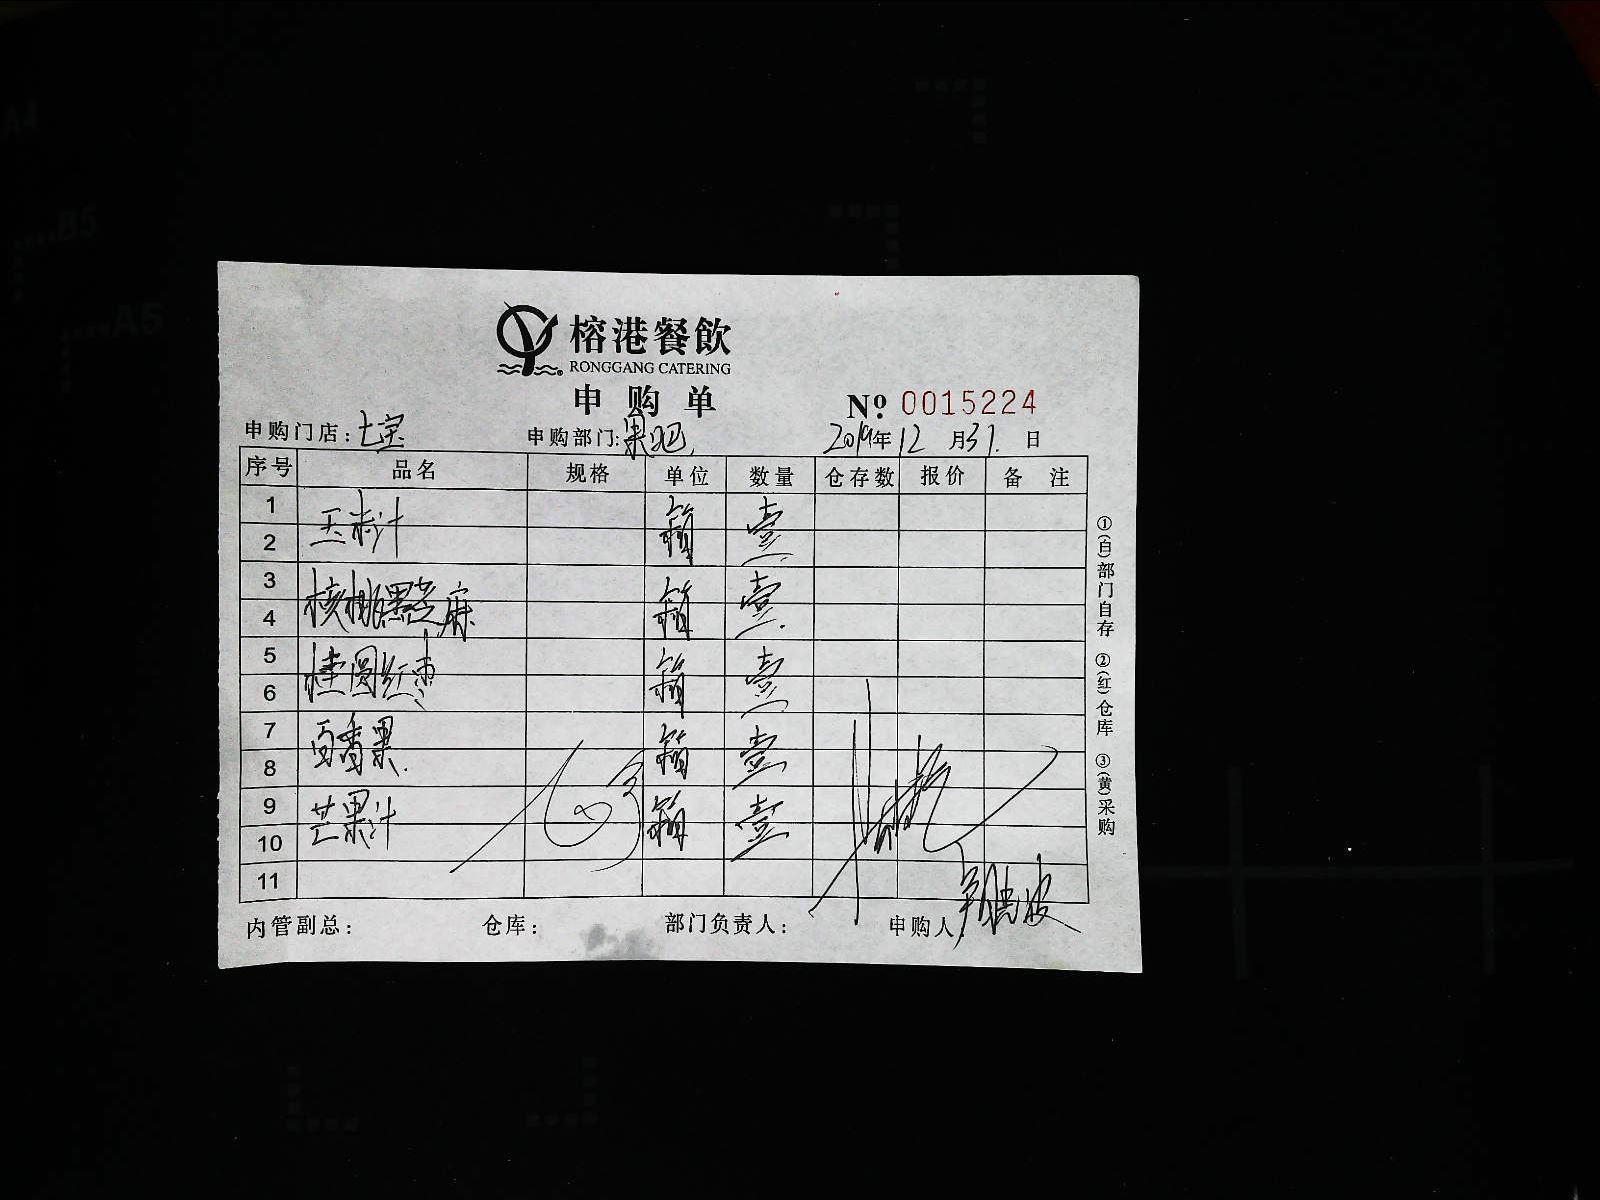 榕港餐飲
RONGGANG CATERING
申购单
№ 0015224
申购门店:七宝 申购部门:果吧 2019年12月31日
序号 品名 规格 单位 数量 仓存数 报价 备注
1
玉米汁 箱 壹
2
3
核桃黑芝麻 箱 壹
4
5
桂圆红枣 箱 壹
6
7
百香果 箱 壹
8
9
芒果汁 箱 壹
10
11
内管副总: 仓库: 部门负责人: 申购人:
①(白)部门自存 ②(红)仓库 ③(黄)采购
A4
B5
A5